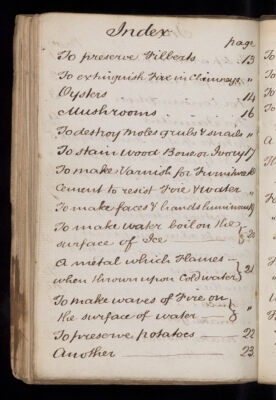 Index
page
To preserve Filberts — 13
To extinguish Fire in Chimneys "
Oysters — 14
Mushrooms — 16
To destroy Moles grubs & snails "
To stain Wood Bone or Ivory 17
To make Varnish for Furniture 18
Cement to resist Fire & Water "
To make faces & hands luminous
To make Water boil on the
surface of Ice } 20
A metal which Flames —
when thrown upon Cold water } 21
To make waves of Fire on
the surface of water — } "
To preserve potatoes — 22
Another — 23